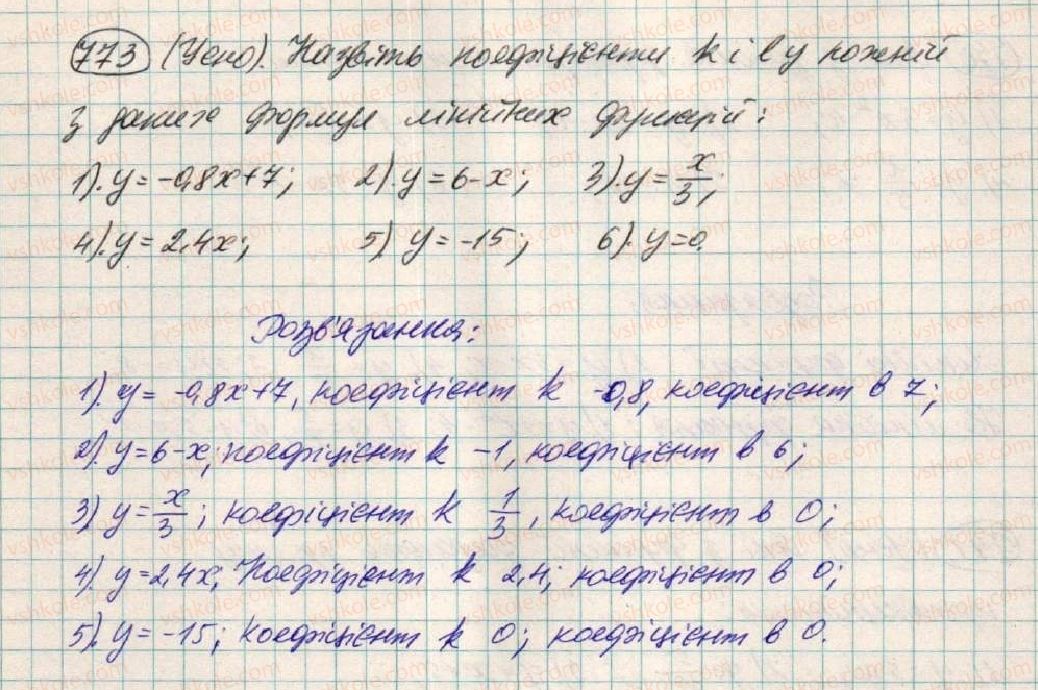 773 (Усно). Назвіть коефіцієнти k і l у кожній
з даних формул лінійних функцій:
1). y = -0,8x+7; 2). y = 6-x; 3). y = x/3;
4). y = 2,4x; 5) y = -15; 6). y=0.
Розв'язання:
1). y = -0,8x+7, коефіцієнт k -0,8, коефіцієнт в 7;
2). y=6-x; коефіцієнт k -1, коефіцієнт в 6;
3) y = x/3; коефіцієнт k 1/3, коефіцієнт в 0;
4). y=2,4x; Коефіцієнт k 2,4; коефіцієнт в 0;
5). y = -15; коефіцієнт k 0; коефіцієнт в 0.